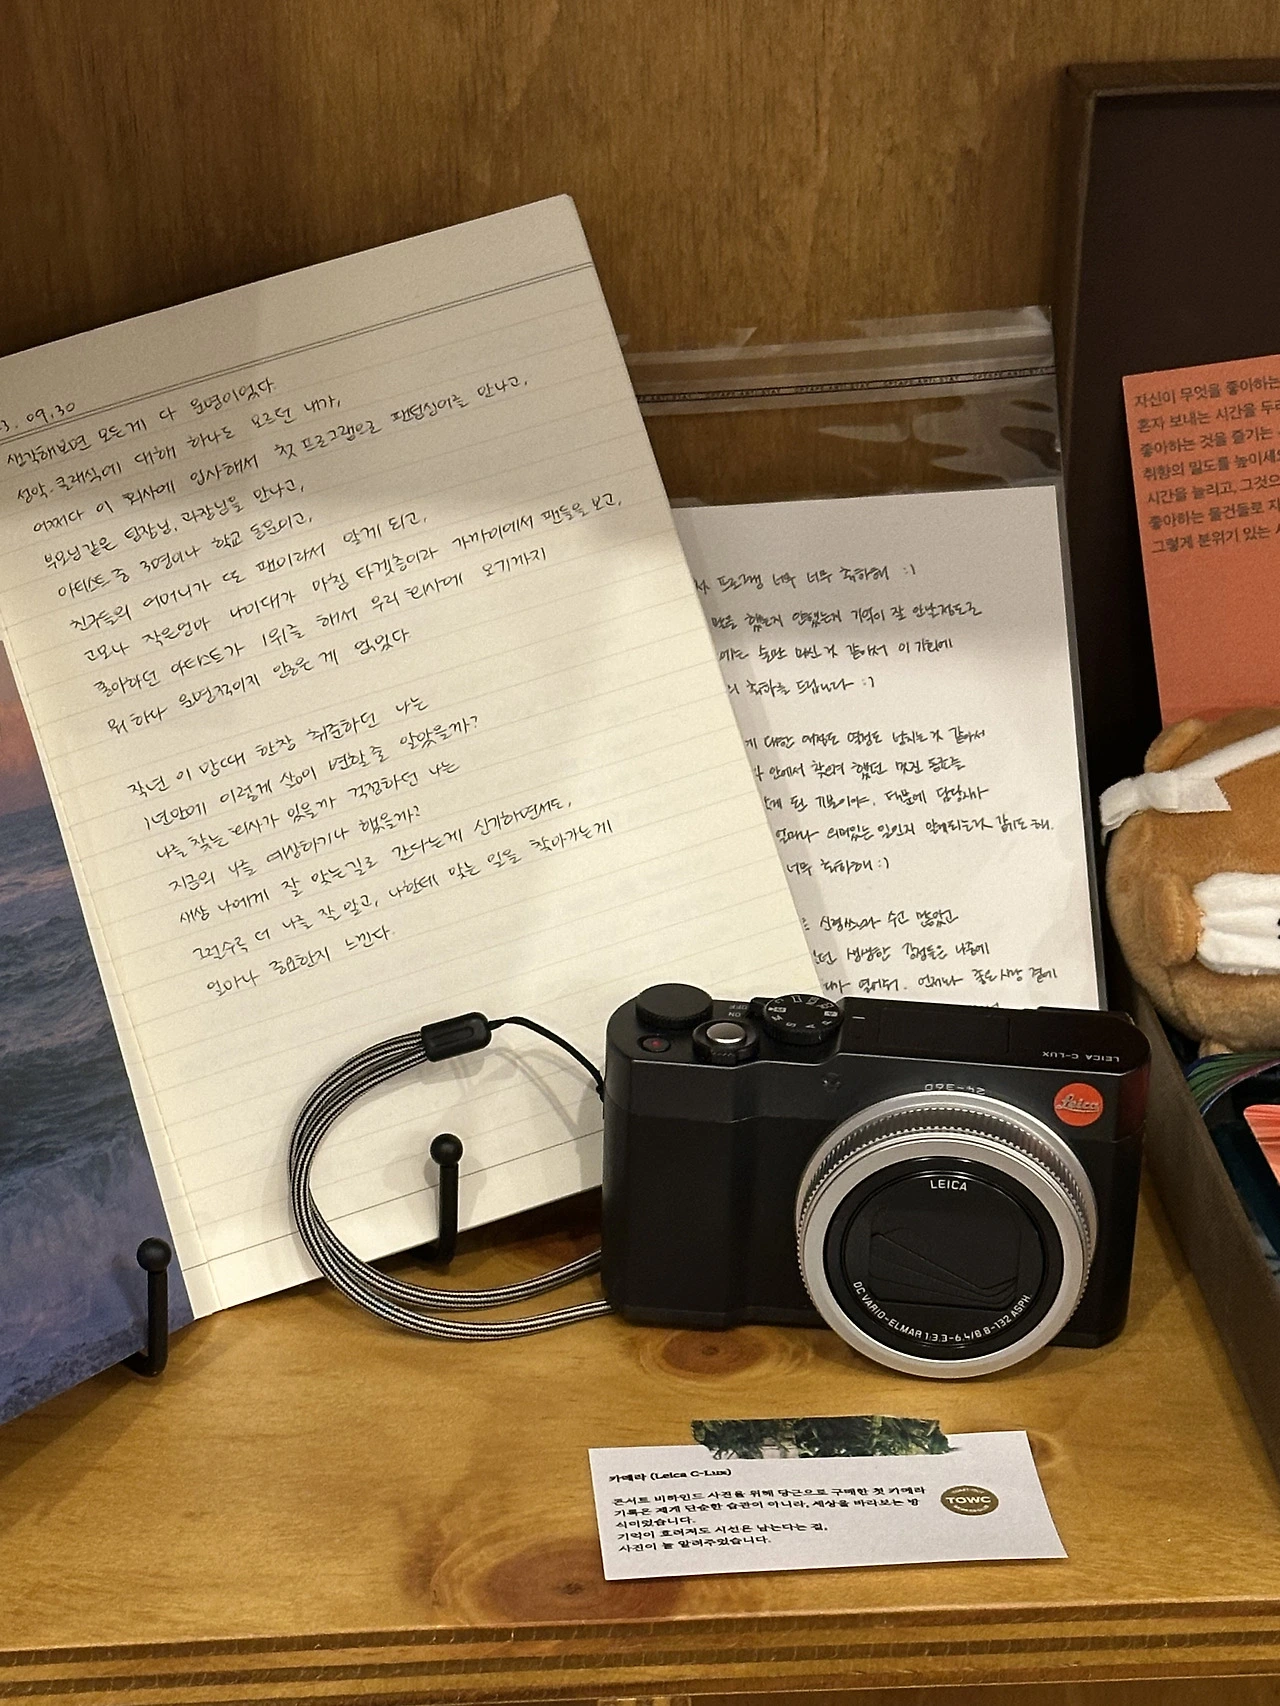 3. 09.30
생각해보면 모든게 다 운명이었다
성악. 클래식에 대해 하나도 모르던 내가,
어쩌다 이 회사에 입사해서 첫 프로그램으로 팬텀싱어를 만나고,
부모님같은 팀장님, 과장님을 만나고,
아티스트 중 3명이나 학교 동문이고,
친구들의 어머니가 또 팬이라서 알게 되고,
고모나 작은엄마 나이대가 마침 타겟층이라 가까이에서 팬들을 보고,
좋아하던 아티스트가 1위를 해서 우리 회사에 오기까지
뭐 하나 운명적이지 않은 게 없었다
작년 이 맘때 한창 취준하던 나는
1년만에 이렇게 삶이 변할 줄 알았을까?
나를 찾는 회사가 있을까 걱정하던 나는
지금의 나를 예상하기나 했을까?
새삼 나에게 잘 맞는길로 간다는게 신기하면서도,
그럴수록 더 나를 잘 알고, 나한테 맞는 일을 찾아가는게
얼마나 중요한지 느낀다.
프로그램 너무 너무 축하해 :)
말을 했는지 안했는지 기억이 잘 안날정도로
에는 술만 마신 것 같아서 이 기회에
축하를 드립니다 :)
게 대한 애정도 열정도 넘치는 것 같아서
안에서 찾으려 했던 멋진 동료를
게 된 기분이야. 덕분에 담당자가
얼마나 의미있는 일인지 알게되는거 같기도 해.
너무 축하해 :)
신경쓰느라 수고 많았고
생생한 감정들은 나중에
언제나 좋은사람 곁에
자신이 무엇을 좋아하는
혼자 보내는 시간을 두려
좋아하는 것을 즐기는
취향의 밀도를 높이세요
시간을 늘리고, 그것으
좋아하는 물건들로 자
그렇게 분위기 있는
ON
OFF
LEICA C-LUX
24-360
Leica
LEICA
DC VARIO-ELMAR 1:3.3-6.4/8.8-132 ASPH
카메라 (Leica C-Lux)
콘서트 비하인드 사진을 위해 당근으로 구매한 첫 카메라
기록은 제게 단순한 습관이 아니라, 세상을 바라보는 방
식이었습니다.
기억이 흐려져도 시선은 남는다는 걸,
사진이 늘 알려주었습니다.
TOWC